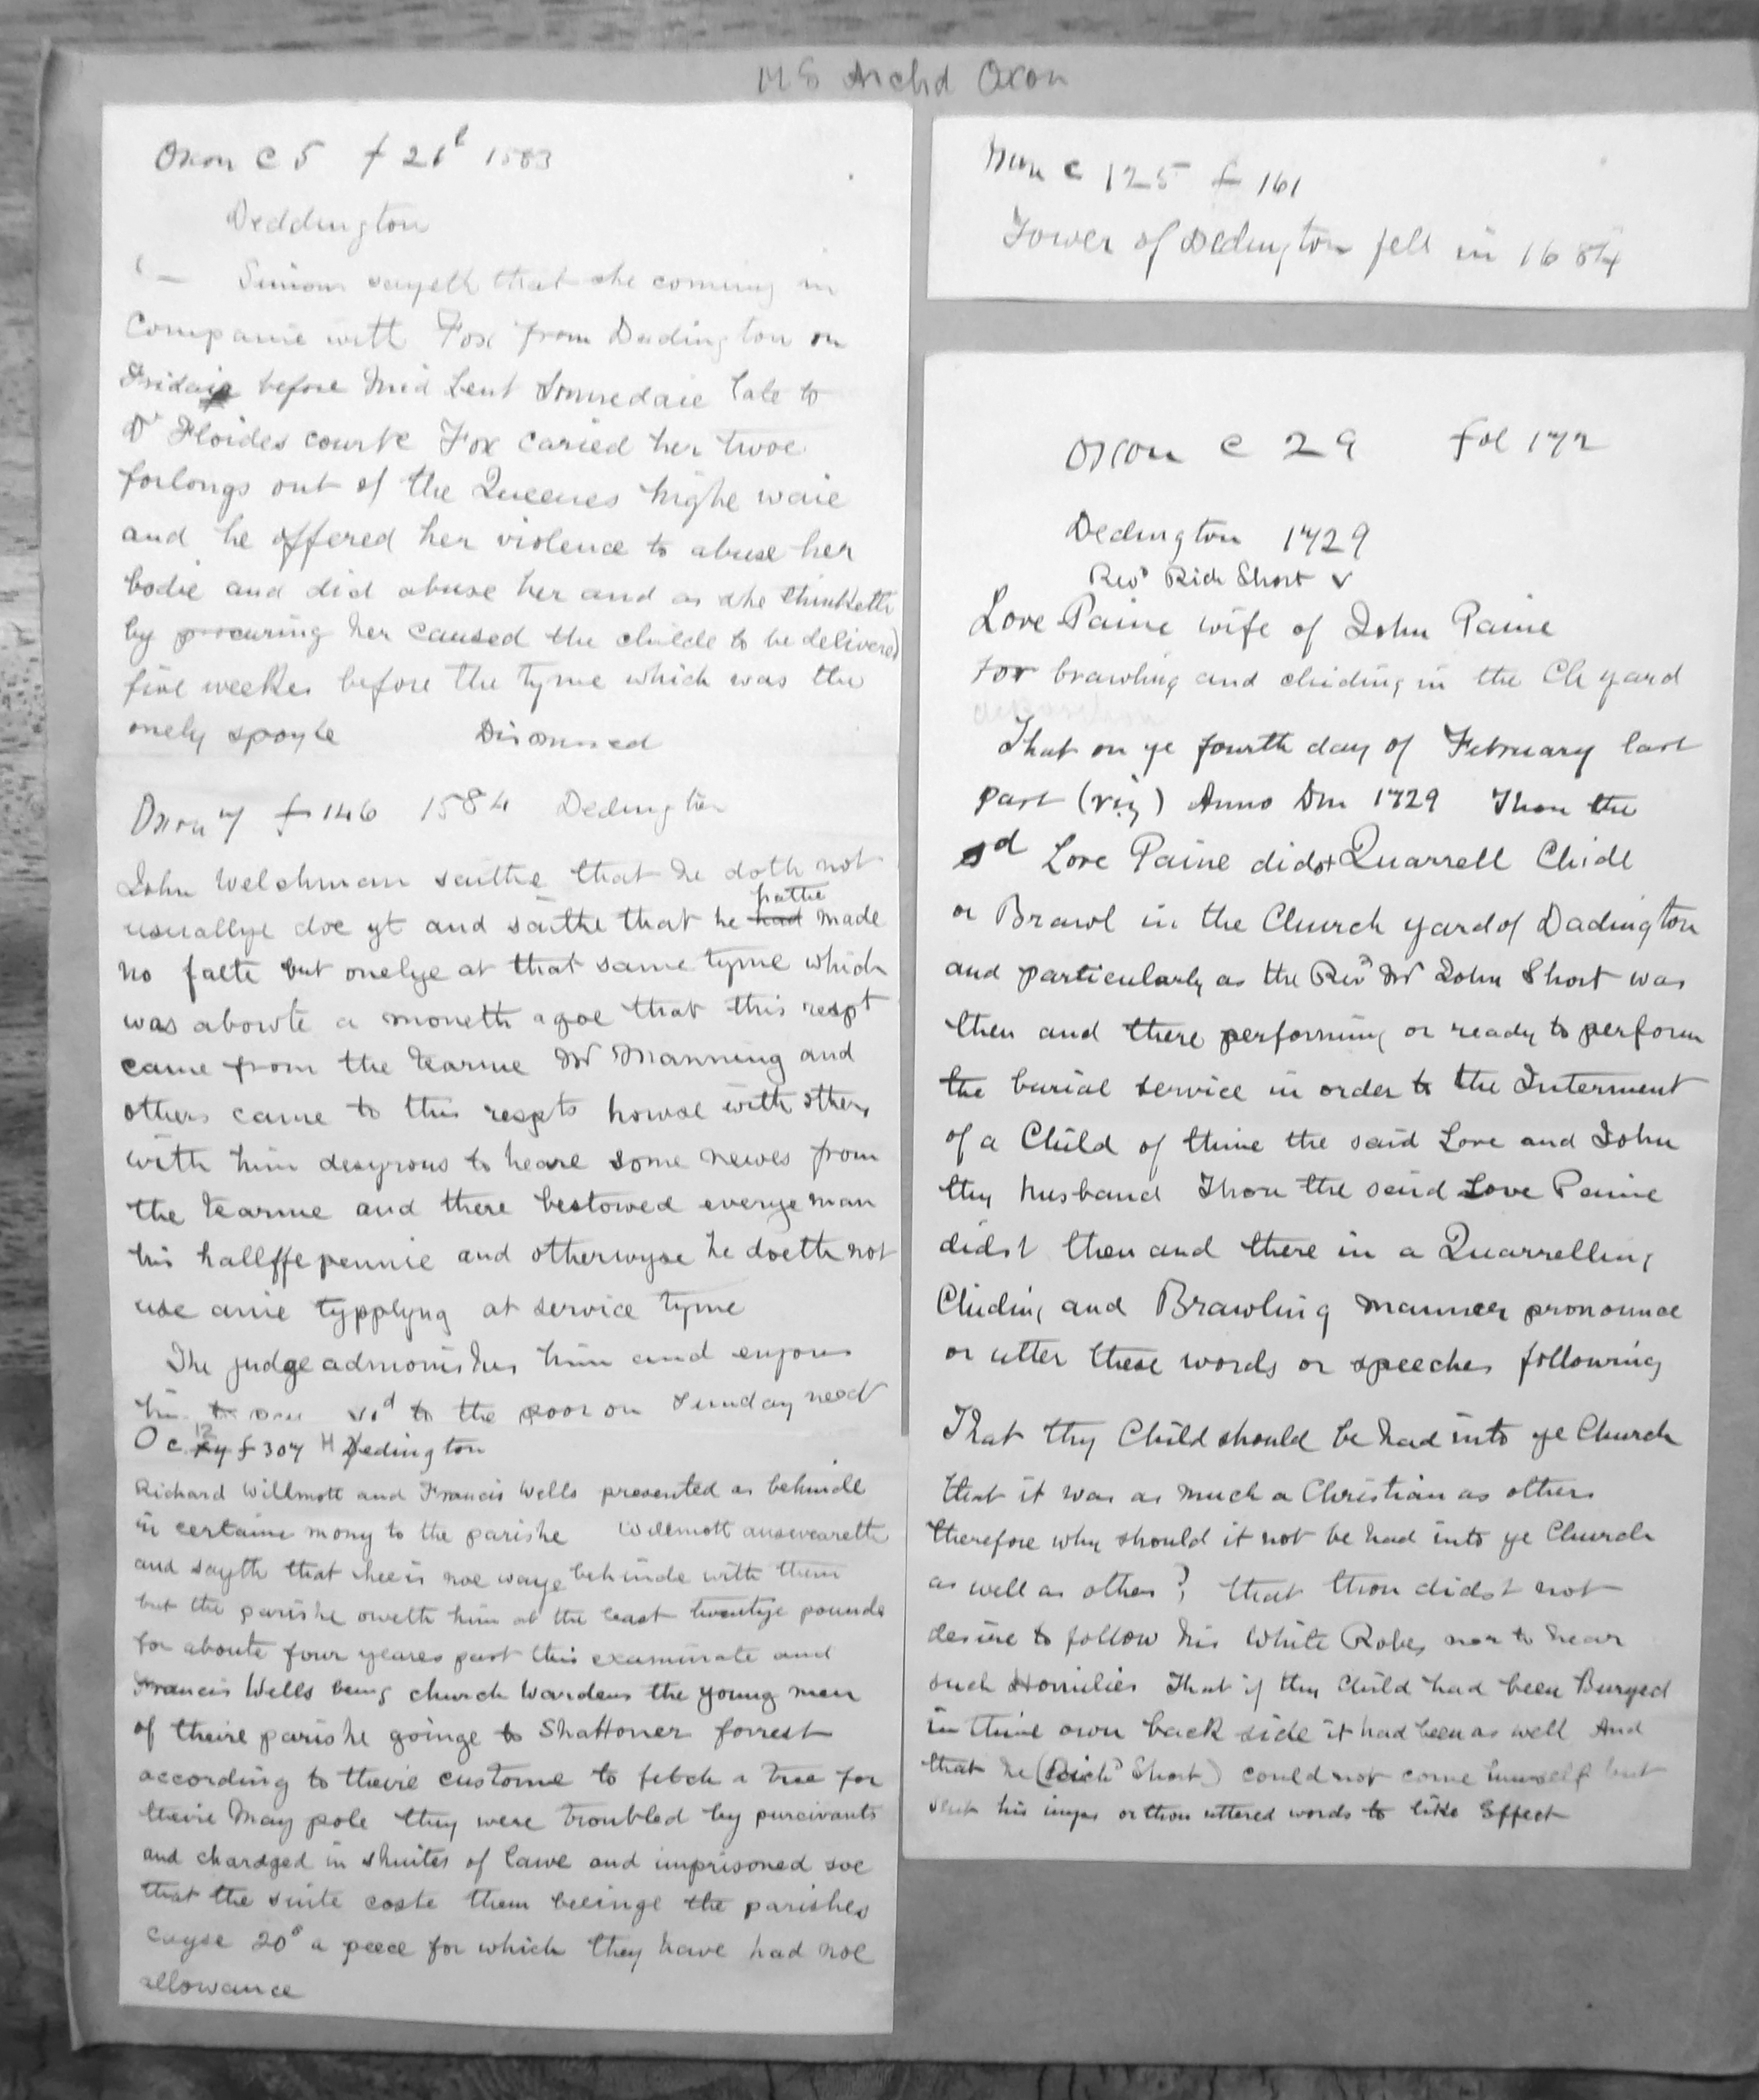 MS Archd Oxon
Oxon c 5 f 21b 1583
Deddington
‘— Simon sayeth that she coming in
Companie with Fox from Dadington on
Fridaie before Mid Lent Sonnedaie late to
Dr Floides courte Fox caried her twoe
forlongs out of the Queenes highe waie
and he offered her violence to abuse her
bodie and did abuse her and as she thinketh
by procuring her caused the childe to be delivered
five weekes before the tyme which was the
onely spoyle Dismissed
Oxon 7 f 146 1584 Dedington
John Welchman saithe that he doth not
usuallye doe yt and saithe that he had hathe made
no falte but onelye at that same tyme which
was abowte a moneth agoe that this respt
came from the tearme Mr Manning and
others came to this respts howse with others
with him desyrous to heare some newes from
the tearme and there bestowed everye man
his hallffe pennie and otherwyse he doeth not
use anie typplyng at service tyme
The judge admonishes him and enjoins
him to pay vid to the poor on Sunday next
O c 12 f 307 H Dedington
Richard Willmott and Francis Wells presented as behinde
in certaine mony to the parishe Willmott answeareth
and sayth that hee is noe waye behinde with them
but the parishe oweth him at the least twentye pounds
for aboute four yeares past this examinate and
Francis Wells being church wardens the young men
of theire parishe goinge to Shattoner forrest
according to theire custome to fetch a tree for
theire May pole they were troubled by purcivants
and chardged in shuites of lawe and imprisoned soe
that the suite coste them beeinge the parishes
cayse 20s a peece for which they have had noe
allowance
Oxon c 125 f 161
Tower of Dedington fell in 1684
Oxon c 29 fol 172
Dedington 1729
Revd Rich Short v
Love Paine wife of John Paine
for brawling and chiding in the Ch yard
deposition
That on ye fourth day of February last
past (viz) Anno Dm 1729 Thou the
sd Love Paine didst Quarrell Chide
or Brawl in the Church yard of Dadington
and particularly as the Revd Mr John Short was
then and there performing or ready to perform
the burial service in order to the Interment
of a Child of thine the said Love and John
thy husband Thou the said Love Paine
didst then and there in a Quarrelling
Chiding and Brawling manner pronounce
or utter these words or speeches following
That thy Child should be had into ye Church
that it was as much a Christian as others
therefore why should it not be had into ye Church
as well as others? that thou didst not
desire to follow his White Robes nor to hear
such Homilies That if thy Child had been Buryed
in thine own back side it had been as well And
that he (Richd Short) could not come himself but
sent his imps or thou uttered words to like Effect